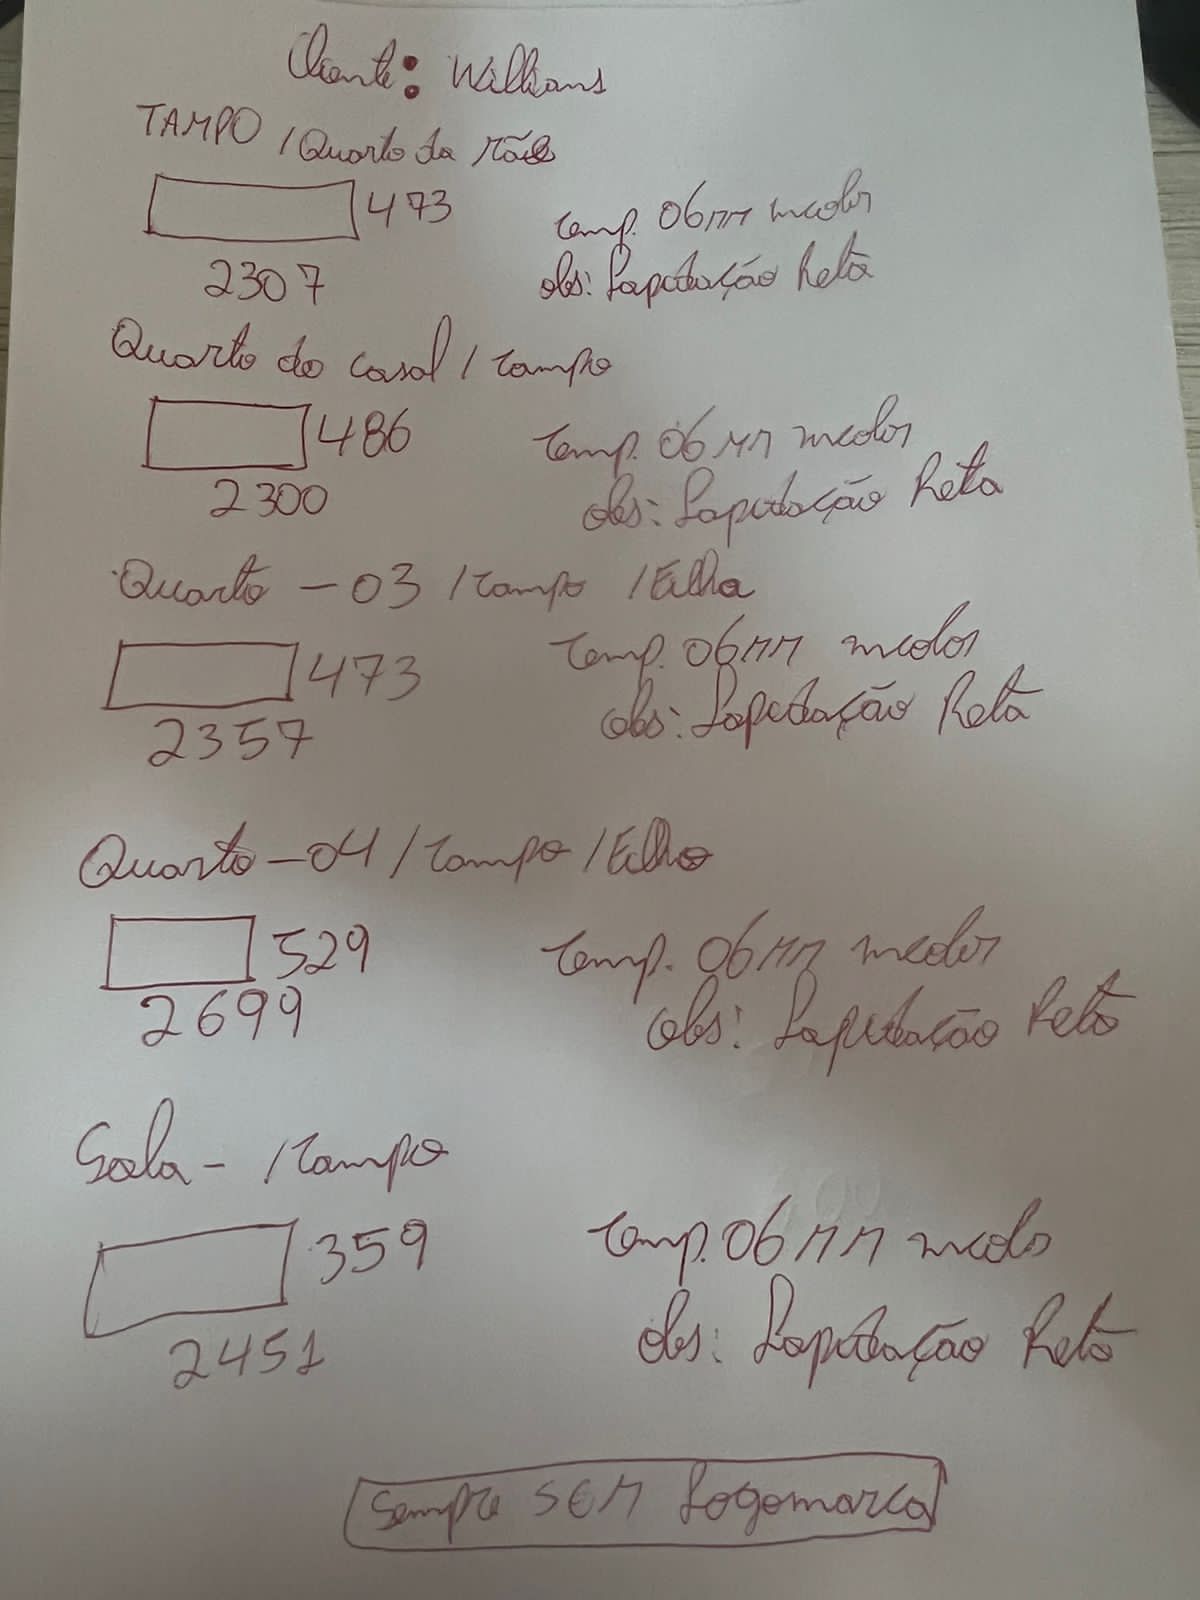 Cliente: Willians
TAMPO / Quarto da Mãe
473
temp. 06MM incolor
2307
obs: Lapidação Reta
Quarto do casal / tampo
486
temp. 06MM incolor
2300
obs: Lapidação Reta
Quarto - 03 / tampo / Filha
473
temp. 06MM incolor
2357
obs: Lapidação Reta
Quarto - 04 / tampo / Filho
529
temp. 06MM incolor
2699
obs: Lapidação Reta
Sala - / tampo
359
temp. 06MM incolor
2451
obs: Lapidação Reta
Sempre SEM Logomarca